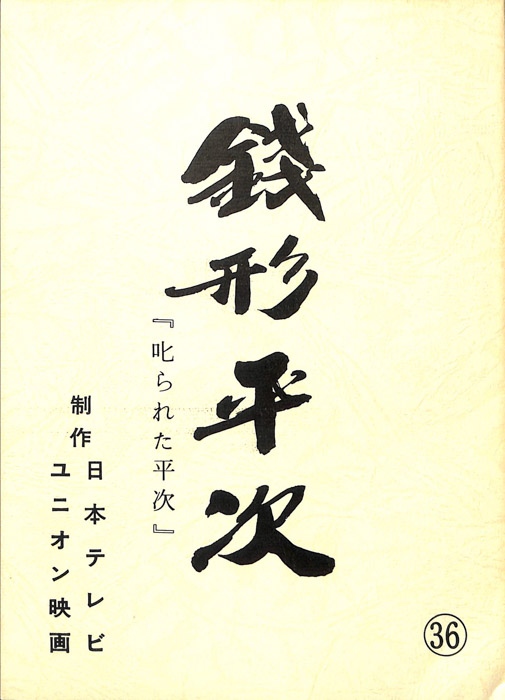 銭形平次
『叱られた平次』
制作
日本テレビ
ユニオン映画
㊱